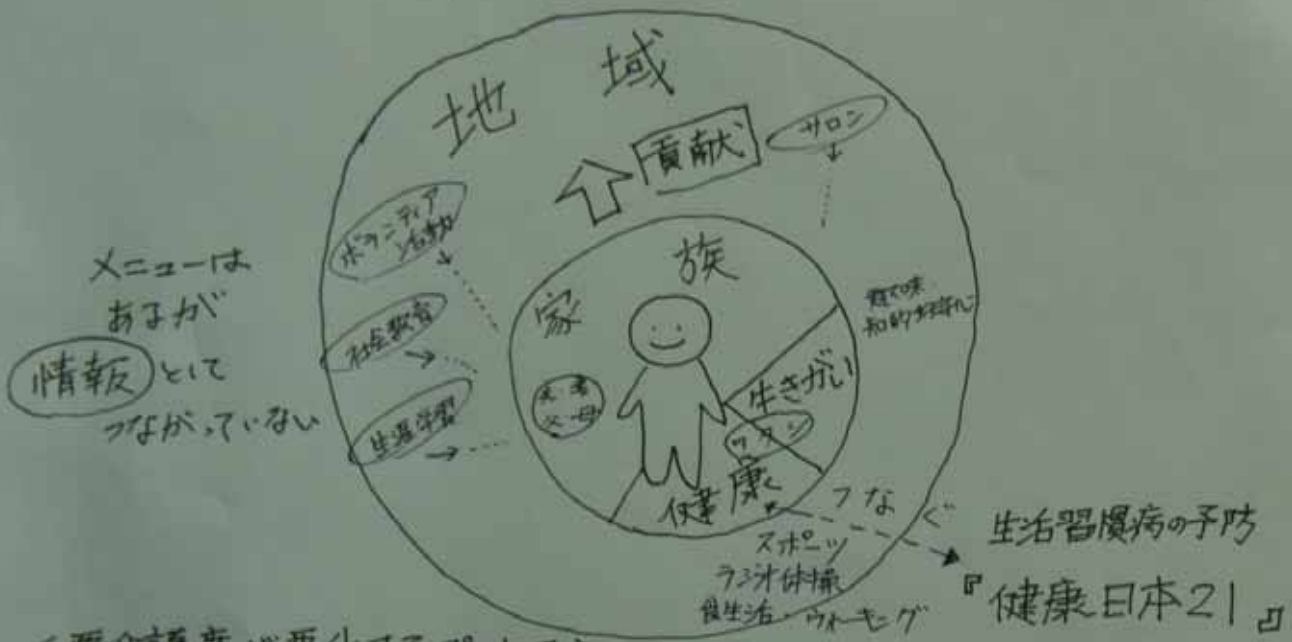 地域
貢献
サロン
ボランティア
活動
社会教育
生涯学習
メニューは
あるが
情報として
つながっていない
家族
夫・妻
父・母
生きがい
ワタシ
健康
趣味
知的好奇心
つなぐ
スポーツ
ラジオ体操
食生活・ウォーキング
生活習慣病の予防
『健康日本21』